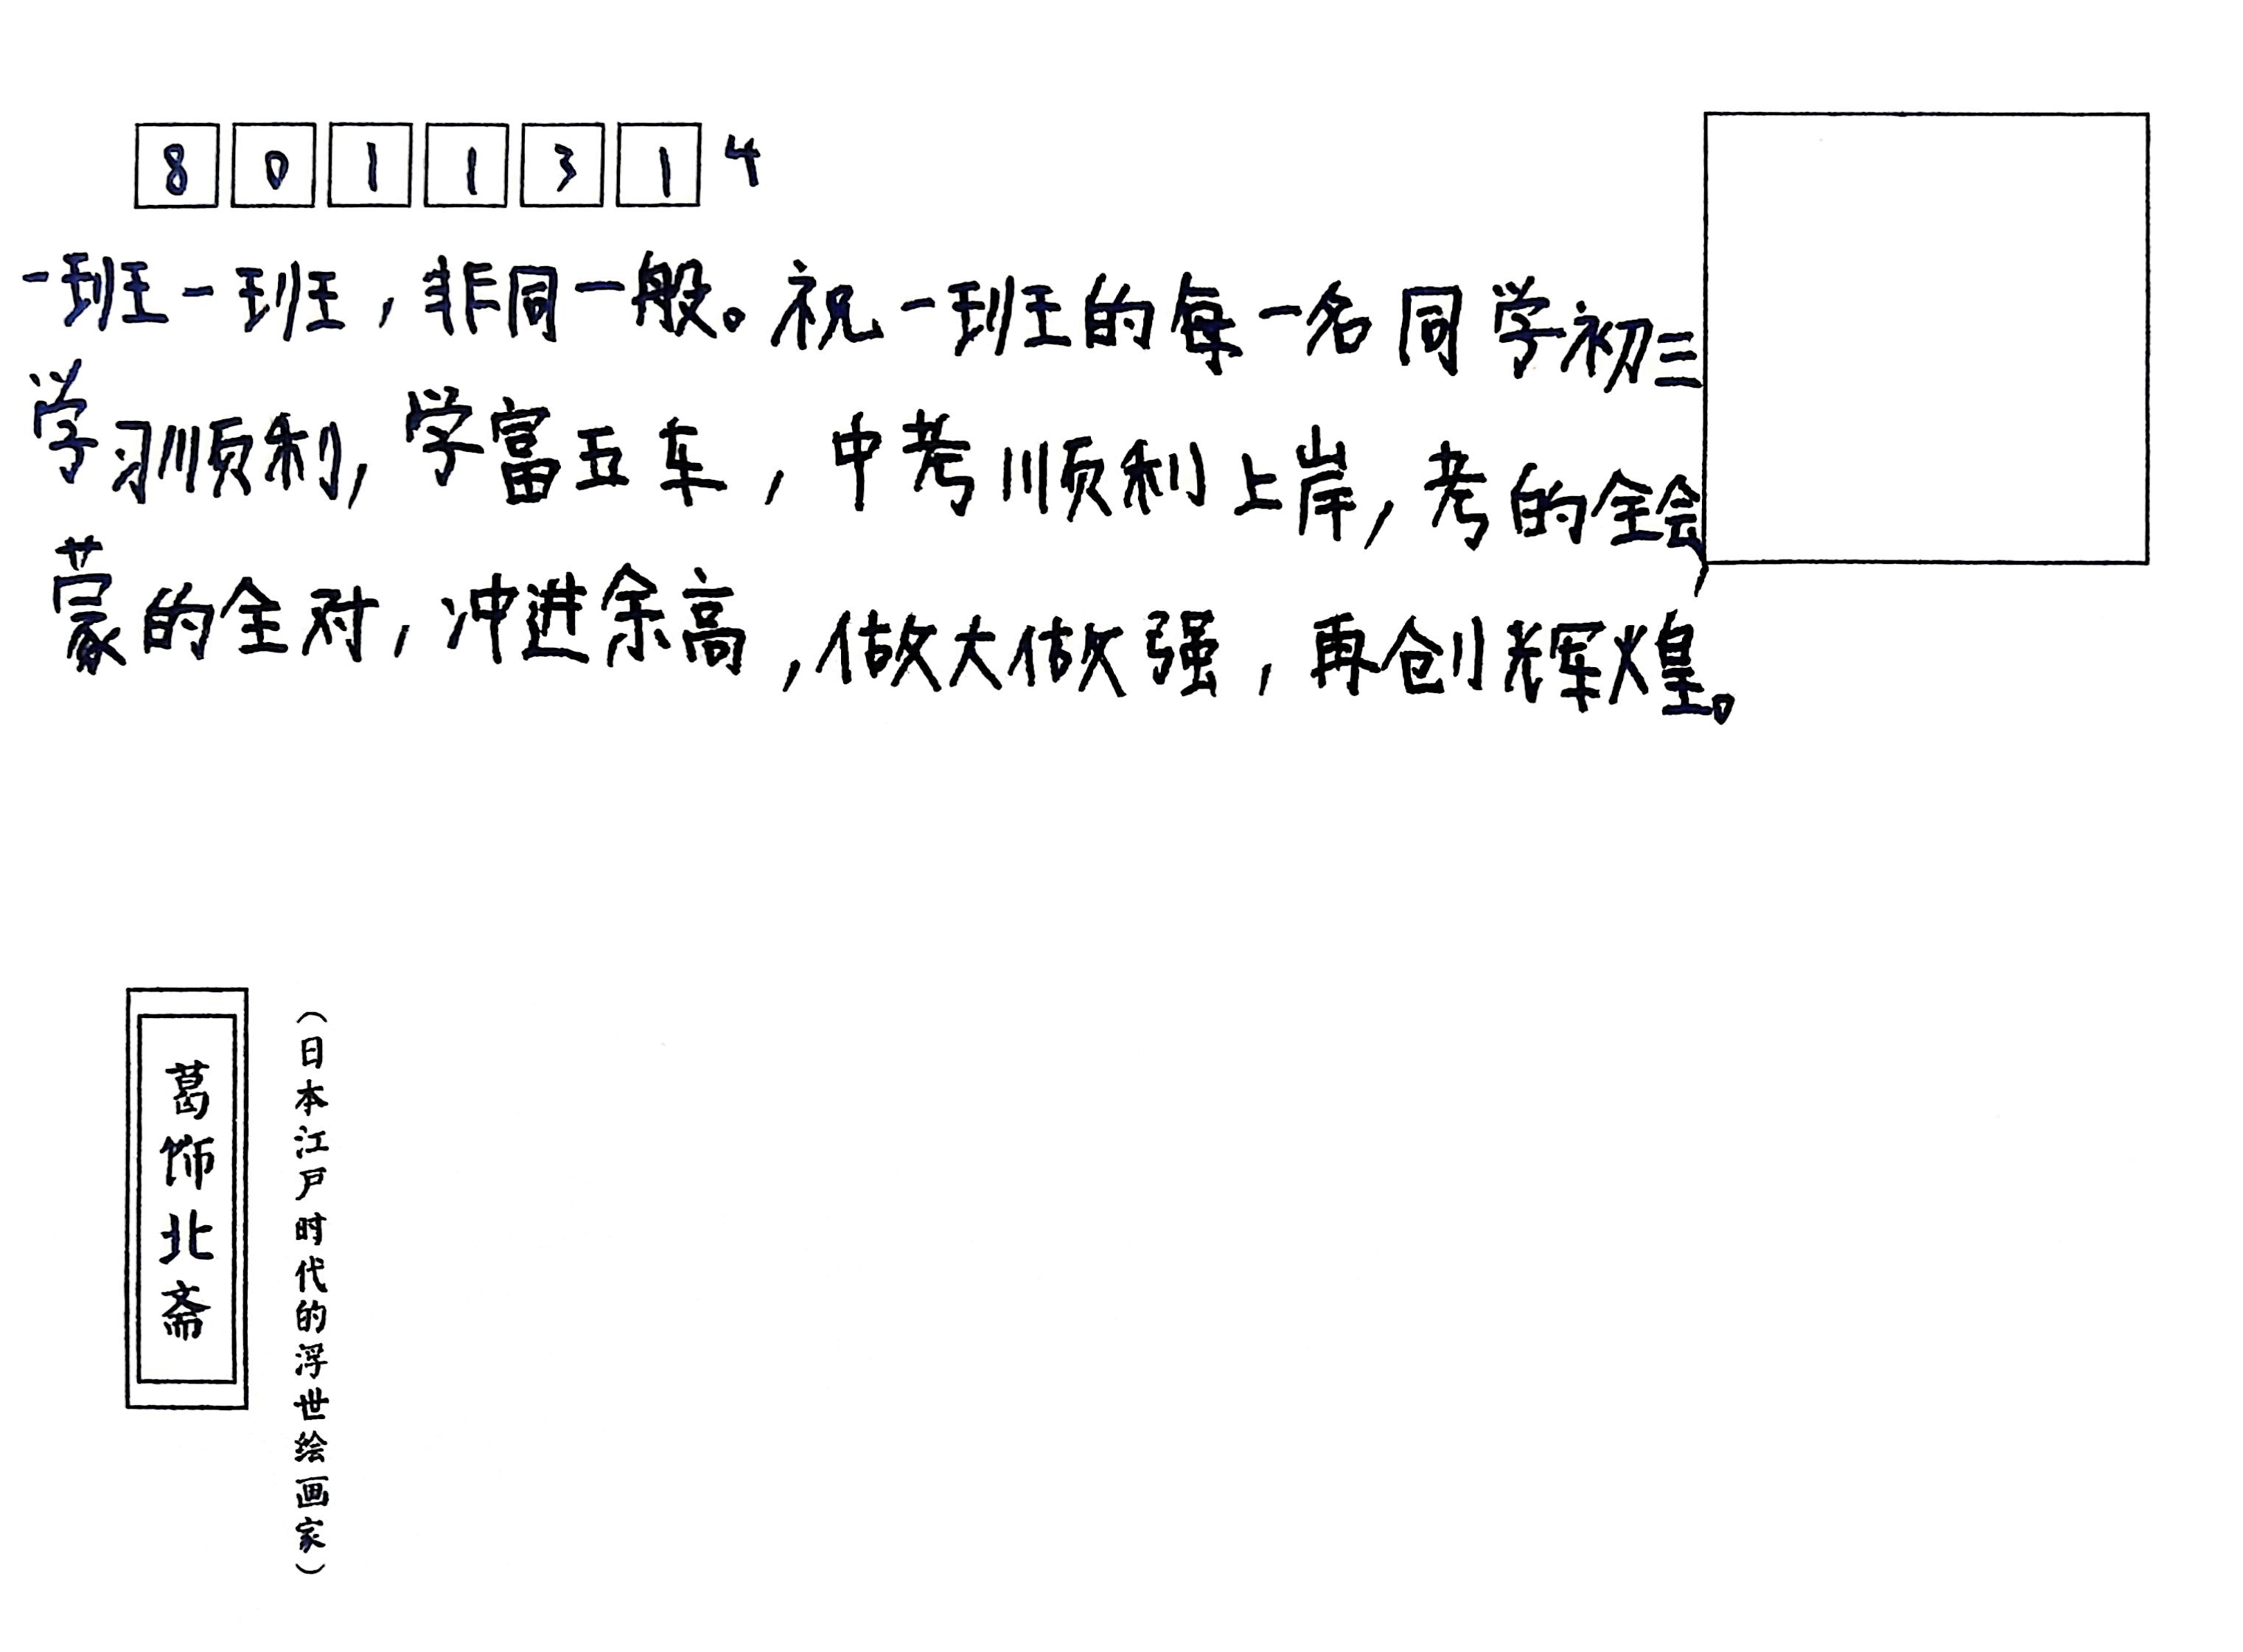 8 0 1 1 3 1 4
一班一班，非同一般。祝一班的每一名同学初三
学习顺利，学富五车，中考顺利上岸，考的全会，
蒙的全对，冲进余高，做大做强，再创辉煌。
葛饰北斋
（日本江户时代的浮世绘画家）